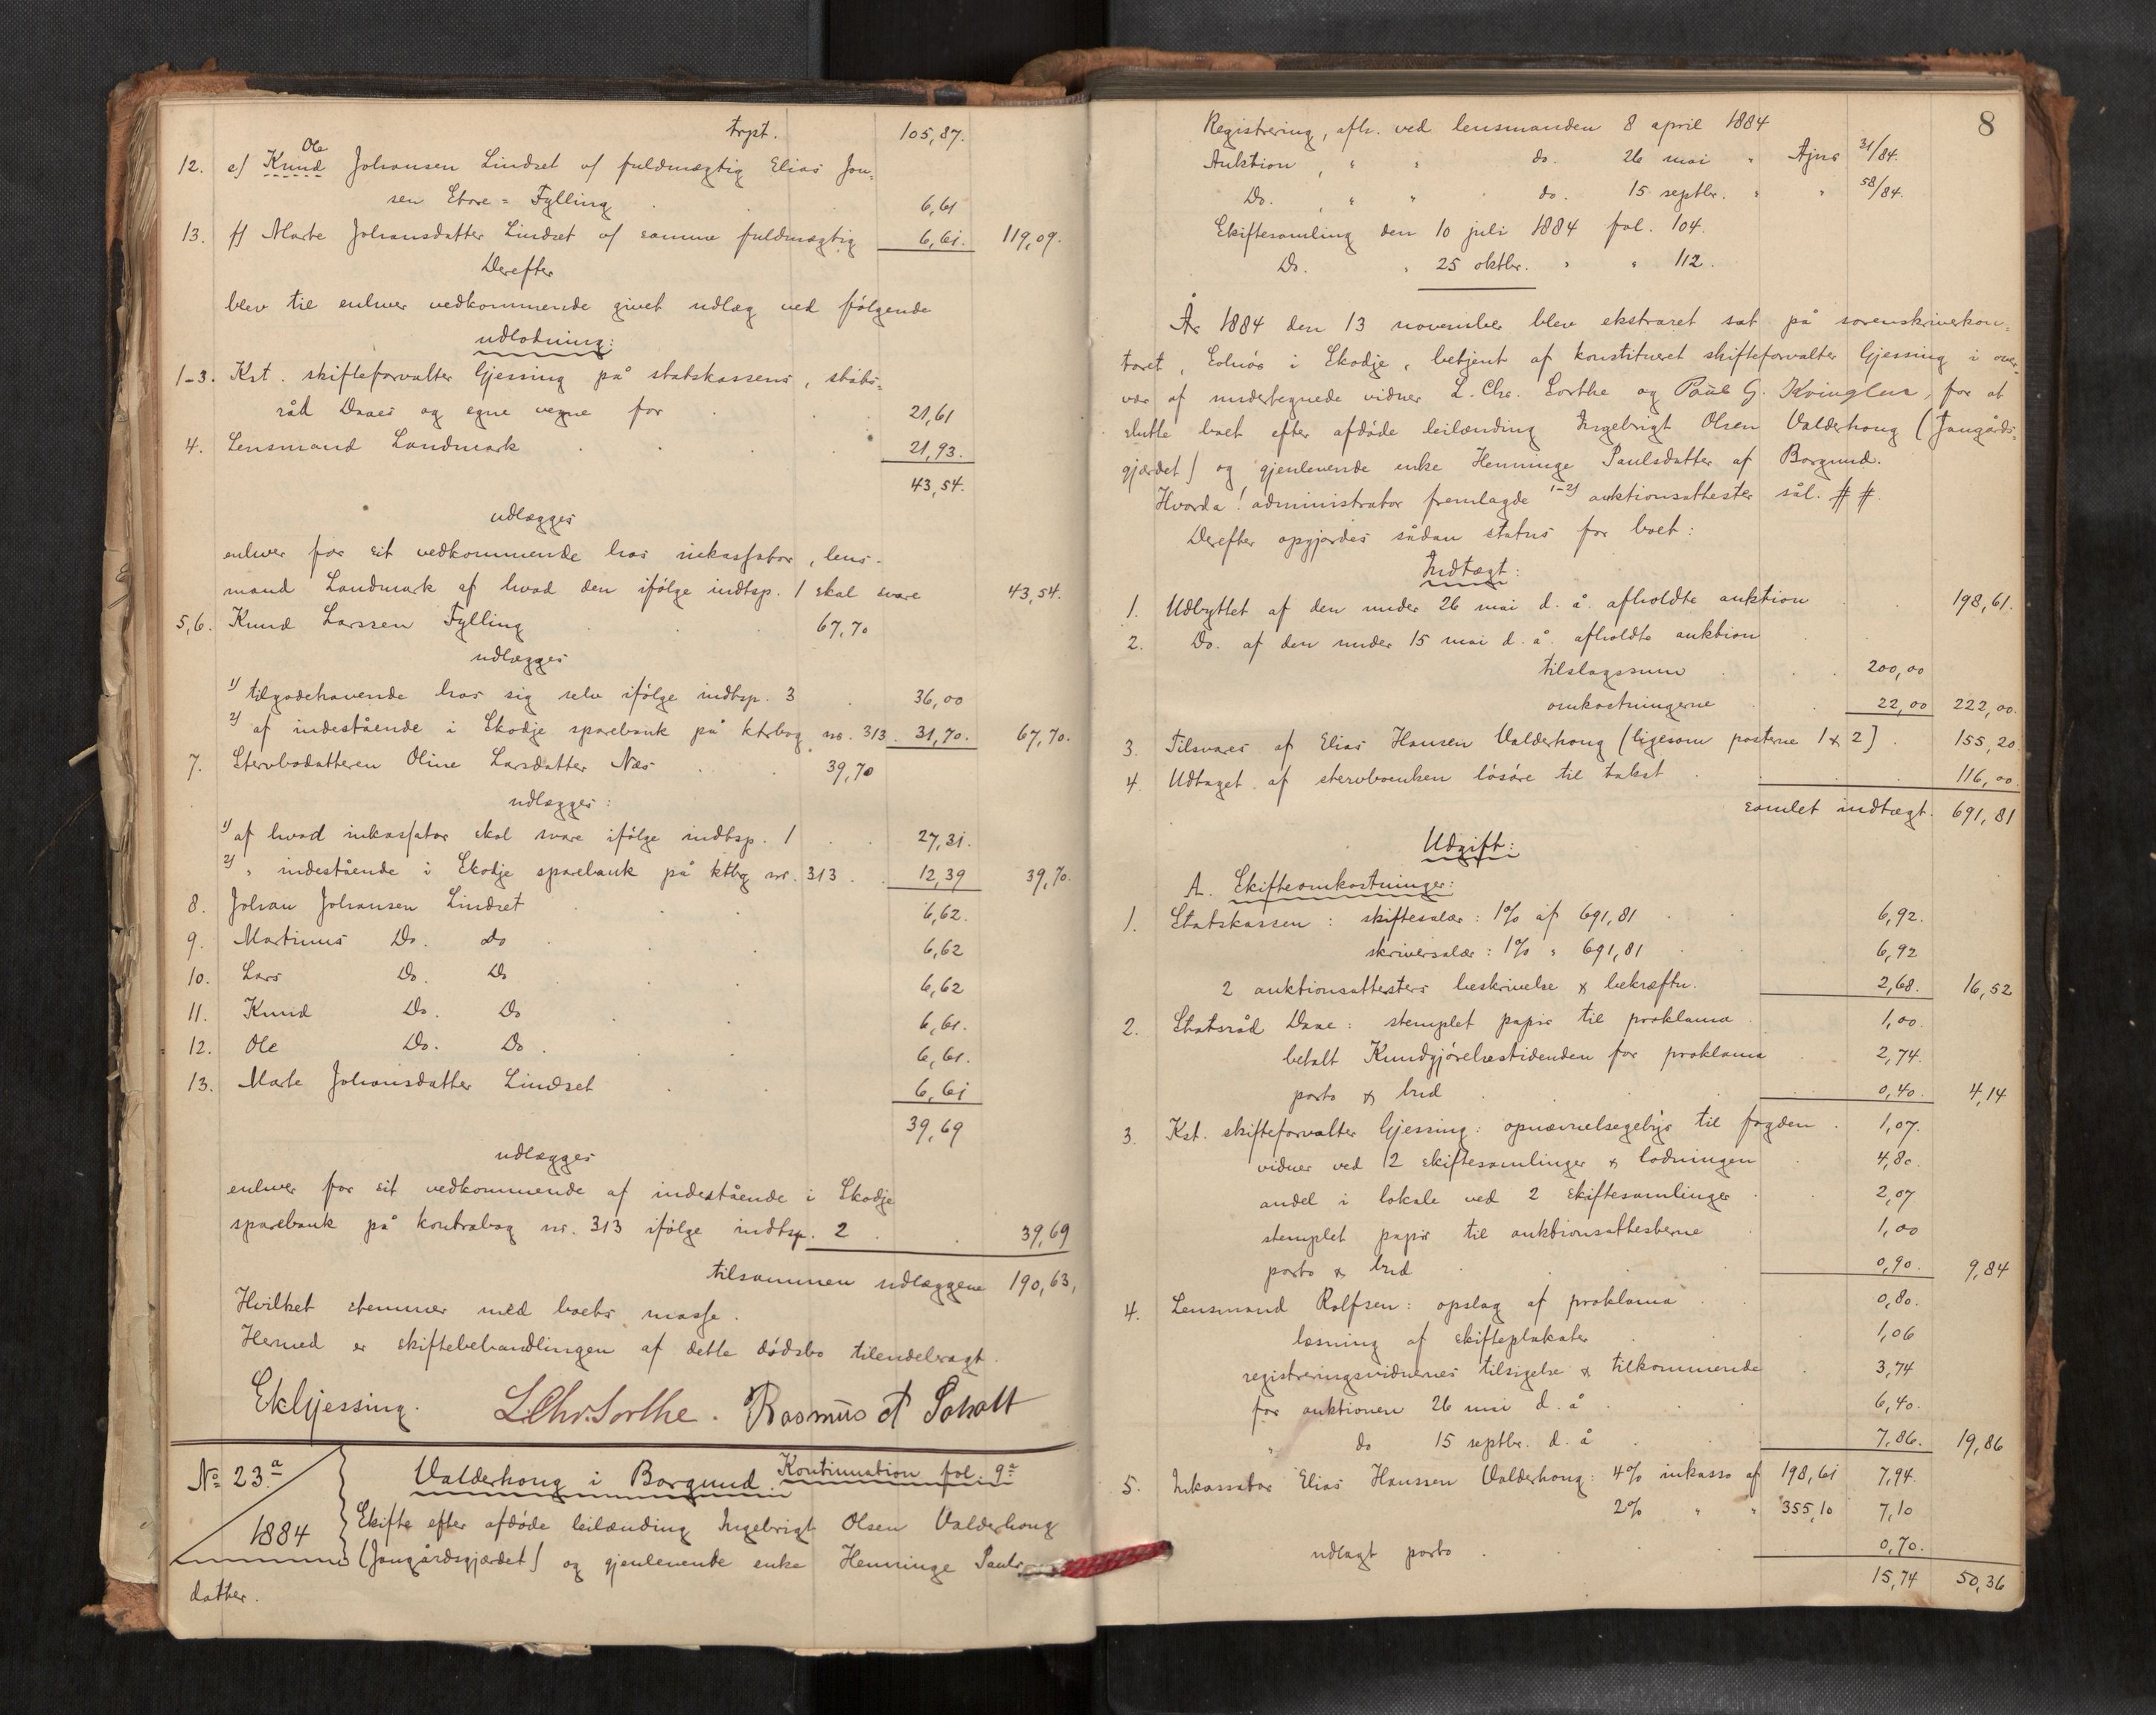 trpt. 105,87.
Ole
12. e) Knud Johansen Lindset v/ fuldmægtig Elias Jon-
sen Store-Fylling . . 6,61
13. f) Marte Johansdatter Lindset v/ samme fuldmægtig 6,61. 119,09.
Derefter
blev til enhver vedkommende givet udlæg ved følgende
udlodning:
1-3. Kst. skifteforvalter Gjessing på statskassens, stats-
råd Daaes og egne vegne for . . 21,61
4. Lensmand Landmark . . . 21,93.
43,54.
udlægges
enhver for sit vedkommende hos inkassator, lens-
mand Landmark af hvad den ifølge indtsp. 1 skal svare 43,54.
5,6. Knud Larssen Fylling . . 67,70
udlægges
1) tilgodehavende hos sig selv ifølge indtsp. 3 . 36,00
2) af indestående i Skodje sparebank på ktrbog nr. 313. 31,70. 67,70.
7. Stervbodatteren Oline Larsdatter Næs . . 39,70
udlægges:
1) af hvad inkassator skal svare ifølge indtsp. 1 . . 27,31.
2) " indestående i Skodje sparebank på ktbg nr. 313 . . 12,39 39,70.
8. Johan Johansen Lindset . . 6,62.
9. Martinus Do. Do . . 6,62
10. Lars Do. Do . . 6,62
11. Knud Do. Do . 6,61.
12. Ole Do. Do . . 6,61.
13. Marte Johansdatter Lindset . . 6,61
39,69
udlægges
enhver for sit vedkommende af indestående i Skodje
sparebank på kontrabog nr. 313 ifølge indtsp. 2 . . 39,69
tilsammen udlæggene 190,63,
Hvilket stemmer med boets masse.
Hermed er skiftebehandlingen af dette dødsbo tilendebragt.
EkGjessing. L.Chr.Sorthe. Rasmus A Soholt
No 23a Valderhoug i Borgund. Kontinuation fol. 9a
1884 Skifte efter afdøde leilænding Ingebrigt Olsen Valderhoug
(Jangårdsgjærdet) og gjenlevende enke Henninge Pauls-
datter.
8
Registrering, afh. ved lensmanden 8 april 1884
Auktion, " " do. 26 mai " Ajnr 31/84.
Do. , " " do. 15 septbr. " " 58/84.
Skiftesamling den 10 juli 1884 fol. 104.
Do. " 25 oktbr. " " 112.
År 1884 den 13 november blev ekstraret sat på sorenskriverkon-
toret, Solnör i Skodje, betjent af konstitueret skifteforvalter Gjessing i over-
vær af undertegnede vidner L. Chr. Sorthe og Paul G. Kvinglus, for at
slutte boet efter afdøde leilænding Ingebrigt Olsen Valderhoug (Jangårds-
gjærdet) og gjenlevende enke Henninge Paulsdatter af Borgund.
Hvorda! administrator fremlagde 1-2) auktionsattester sål. # #.
Derefter opgjordes sådan status for boet:
Indtægt:
1. Udbyttet af den under 26 mai d. å. afholdte auktion . . 198,61.
2. Do. af den under 15 mai d. å. afholdte auktion .
tilslagssum . . . 200,00
omkostningerne . . 22,00 222,00.
3. Tilsvares af Elias Hansen Valderhoug (ligesom posterne 1 & 2) . 155,20
4. Udtaget af stervboenken løsøre til takst . . . 116,00.
samlet indtægt. 691,81
Udgift:
A. Skifteomkostninger:
1. Statskassen: skiftesalær: 1% af 691,81 . . 6,92.
skriversalær: 1% " 691,81 . 6,92
2 auktionsattesters beskrivelse & bekræftn. 2,68. 16,52
2. Statsråd Daae: stemplet papir til proklama . 1,00.
betalt Kundgjørelsestidenden for proklama . 2,74.
porto & bud . . . 0,40. 4,14
3. Kst. skifteforvalter Gjessing: opnævnelsegebyr til fogden . 1,07.
vidner ved 2 skiftesamlinger & lodningen . 4,80.
andel i lokale ved 2 skiftesamlinger . 2,07
stemplet papir til auktionsattesterne . 1,00
porto & bud . . . 0,90. 9,84
4. Lensmand Rolfsen: opslag af proklama . . 0,80.
læsning af skifteplakater . . 1,06
registreringsvidnernes tilsigelse & tilkommende . 3,74
for auktionen 26 mai d. å . . 6,40.
" do 15 septbr. d. å . . 7,86. 19,86
5. Inkassator Elias Hanssen Valderhoug: 4% inkasso af 198,61 7,94.
2% " " 355,10 7,10
udlagt porto . . . 0,70.
15,74 50,36